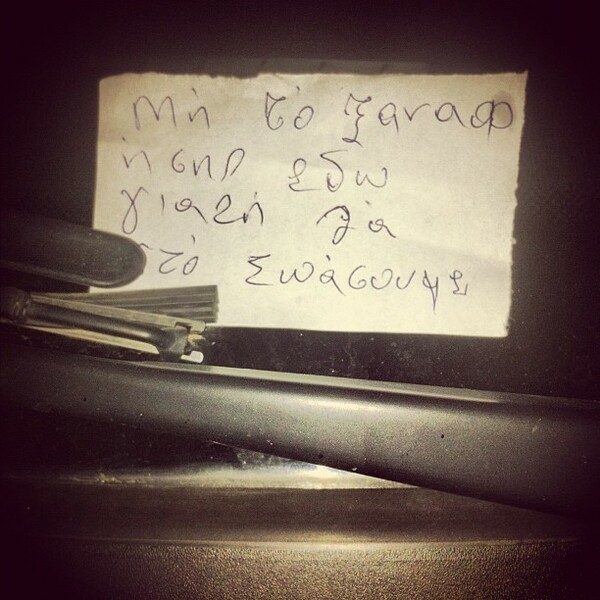 Μή τό ξαναφ
ήσης εδω
γιατή θά
τό Σπάσουμε